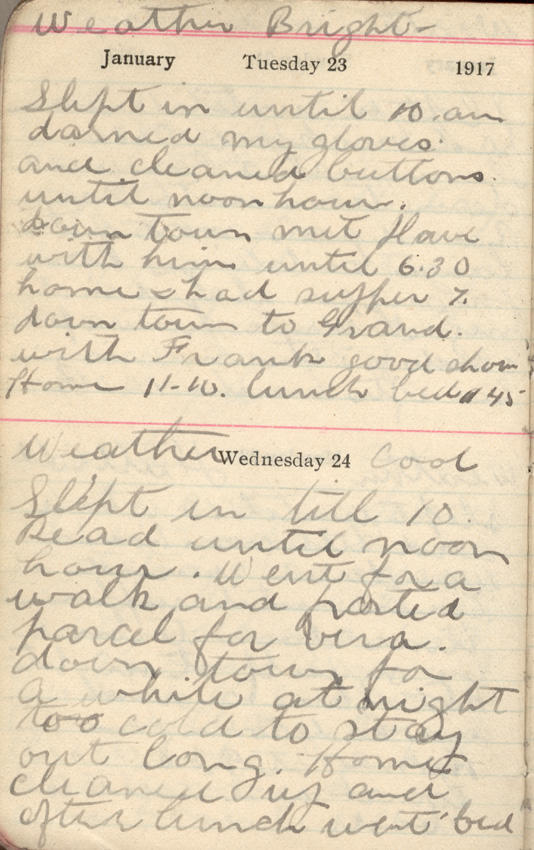 Weather Bright-
January Tuesday 23 1917
Slept in until 10. am
darned my gloves
and cleaned buttons
until noon hour.
down town met
with him until 6.30
home & had supper 7.
down town to Grand.
with Frank good show
Home 11-10. lunch bed 45
Weather Wednesday 24 Cool
Slept in till 10.
Read until noon
hour. Went for a
walk and posted
parcel for Vera.
down town for
a while at night
too cold to stay
out long. Home
cleaned up and
after lunch went bed